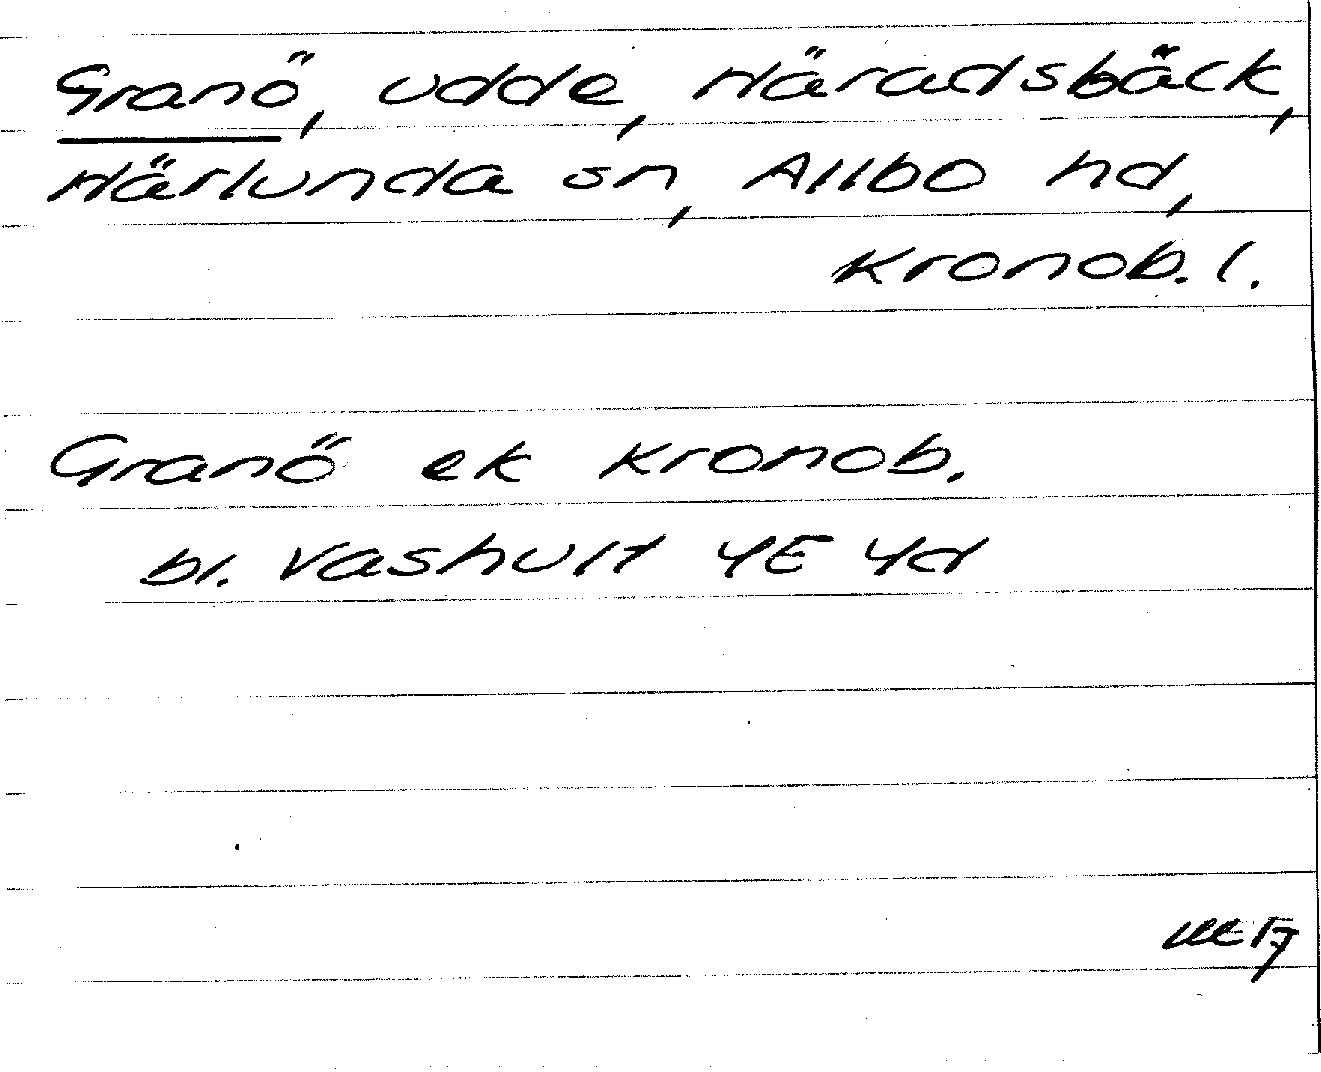 Granö, udde, Häradsbäck,
Härlunda sn, Allbo hd,
Kronob. l.
Granö ek Kronob.
bl. Vashult 4E 4d